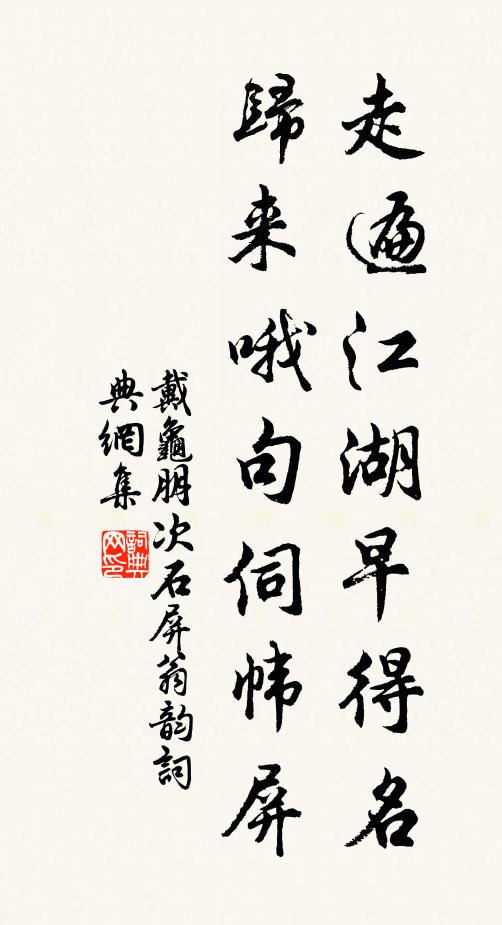 走遍江湖早得名
歸来哦句伺幃屏
戴龜朋次石屏翁韵詞
典網集
詞典网印